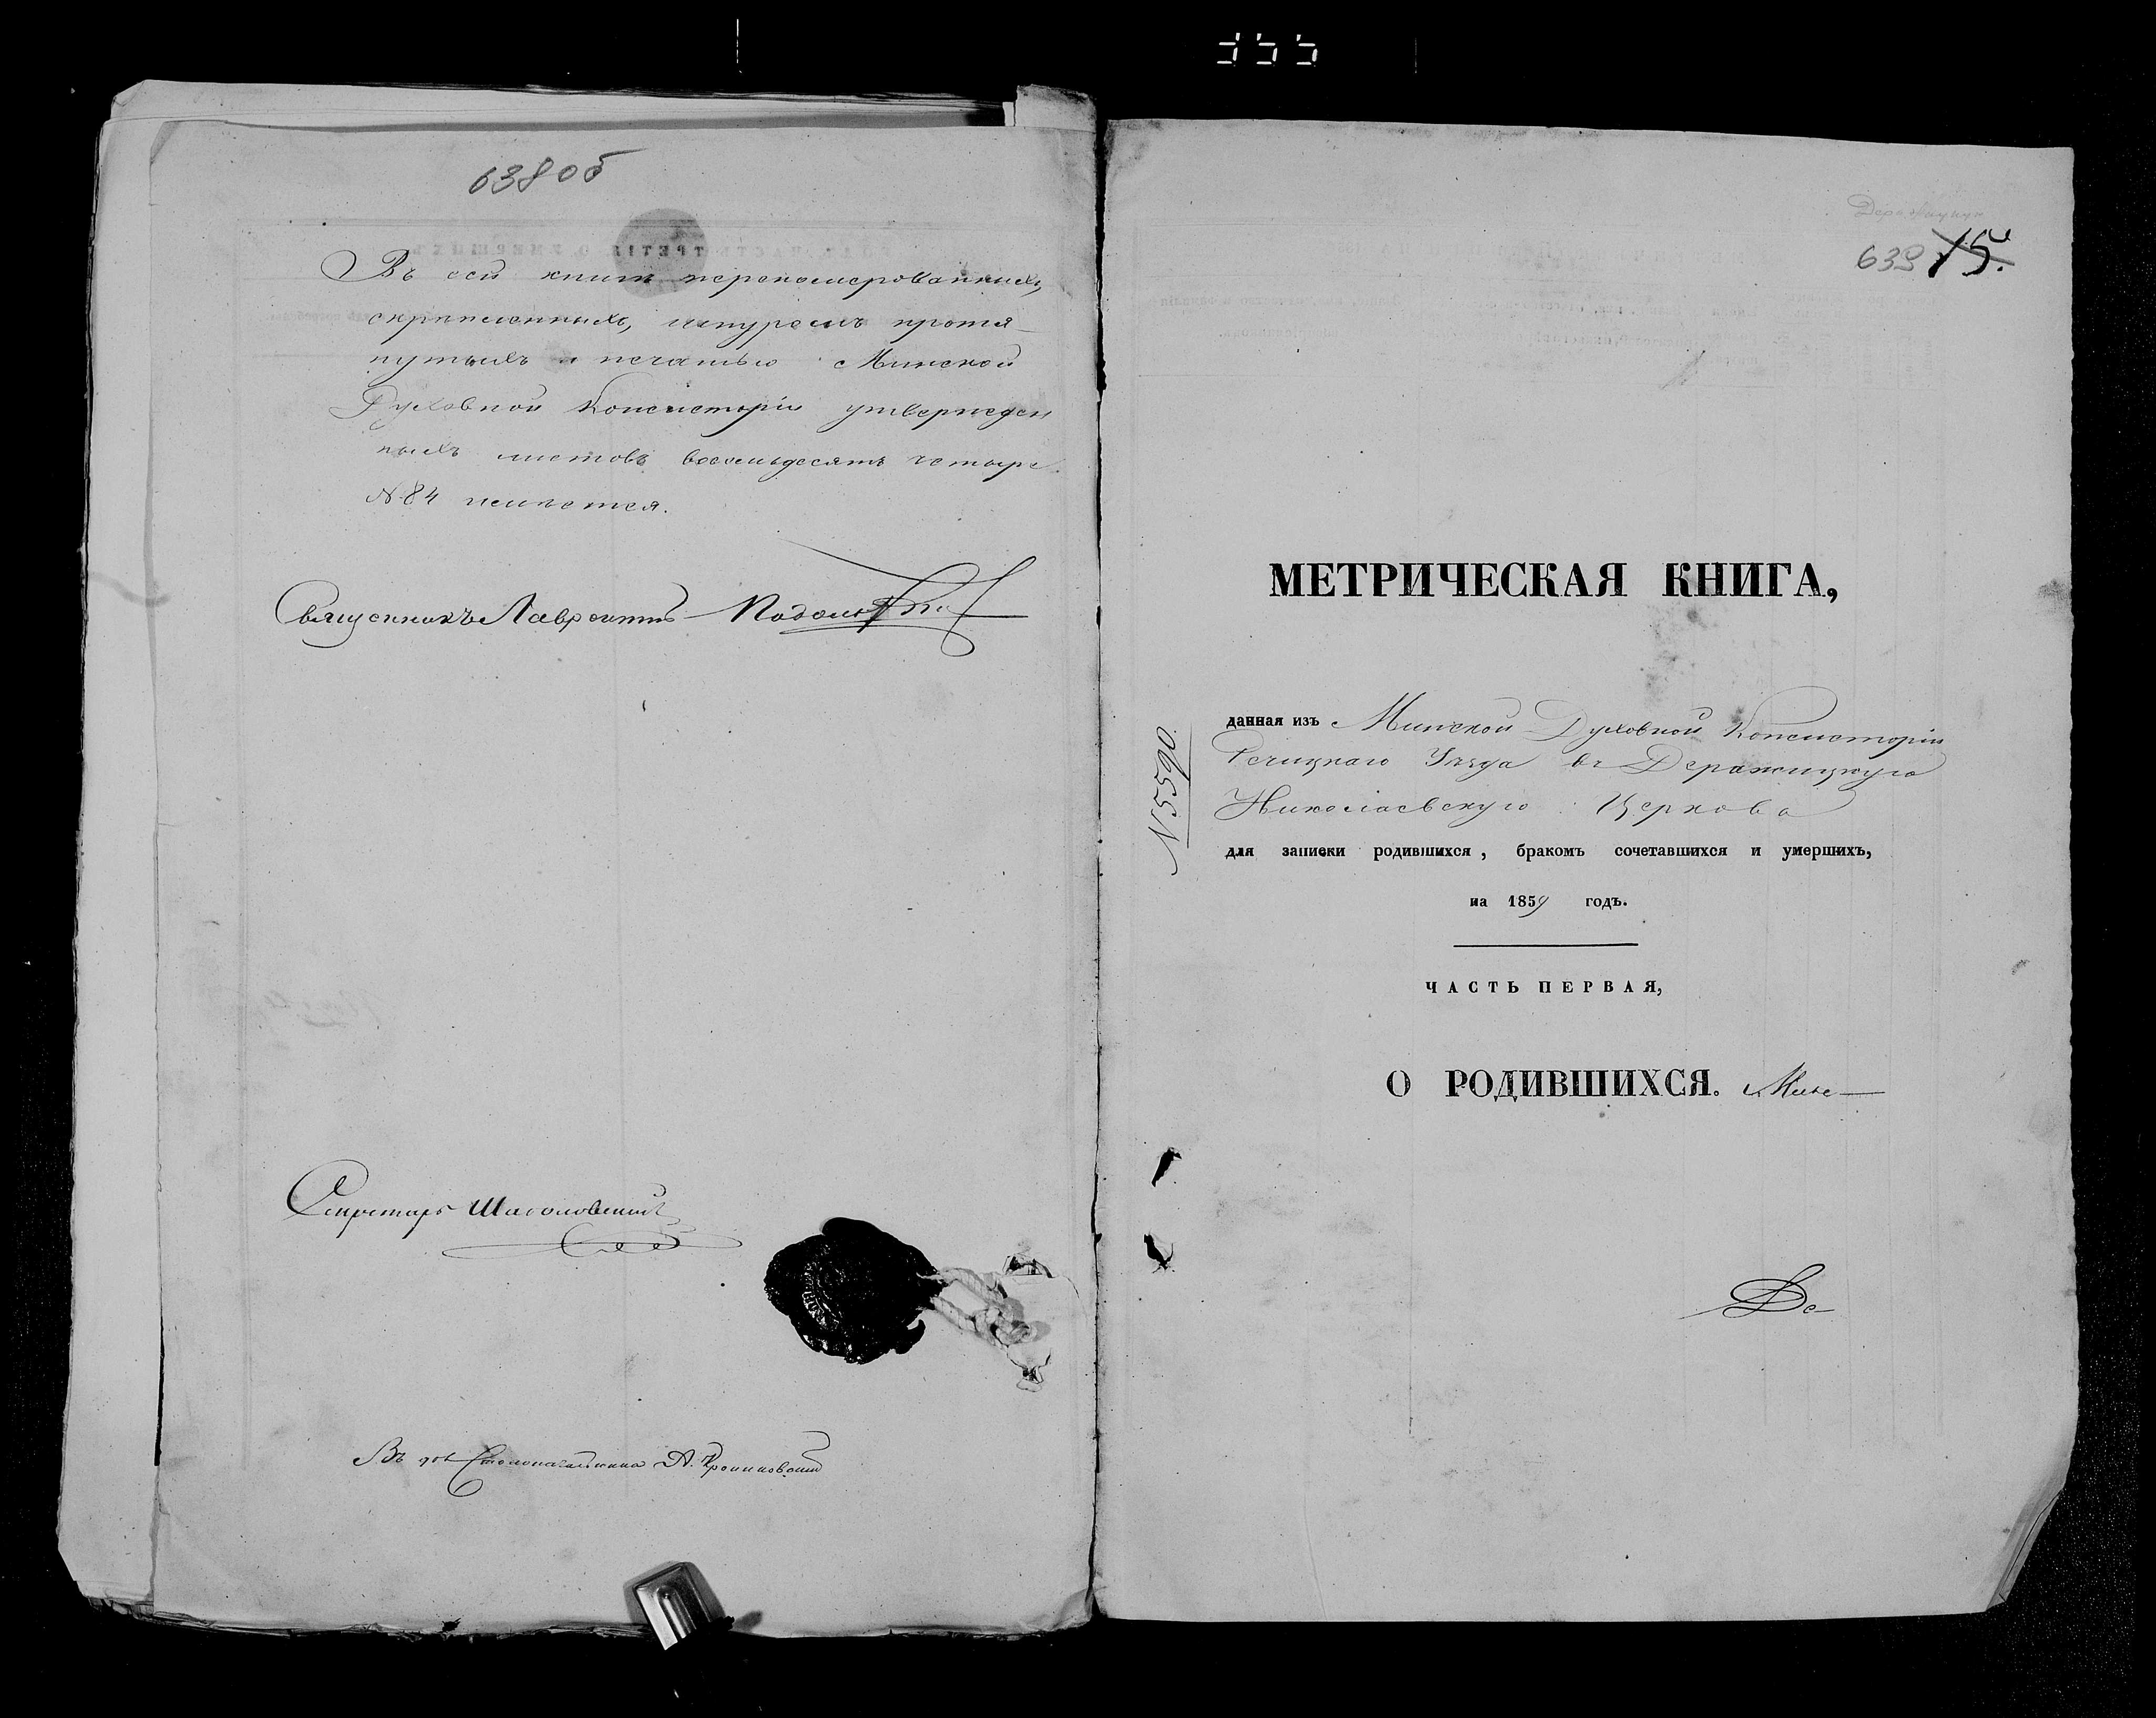 638об
Въ сей книгѣ переномерованныхъ,
скрѣпленныхъ, шнуромъ протя-
нутыхъ и печатью Минской
Духовной Консисторіи утвержден
ныхъ листовъ восемьдесятъ четыре
№ 84 имѣется.
Священникъ Лаврентій
Секретарь
Въ д. Столоначальника А.
639 15.
МЕТРИЧЕСКАЯ КНИГА,
данная изъ Минской Духовной Консисторіи
Речицкаго Уѣзда въ Деражицкую
Николаевскую Церковь
№ 5590
для записки родившихся, бракомъ сочетавшихся и умершихъ,
на 1859 годъ.
ЧАСТЬ ПЕРВАЯ,
О РОДИВШИХСЯ.
Де-